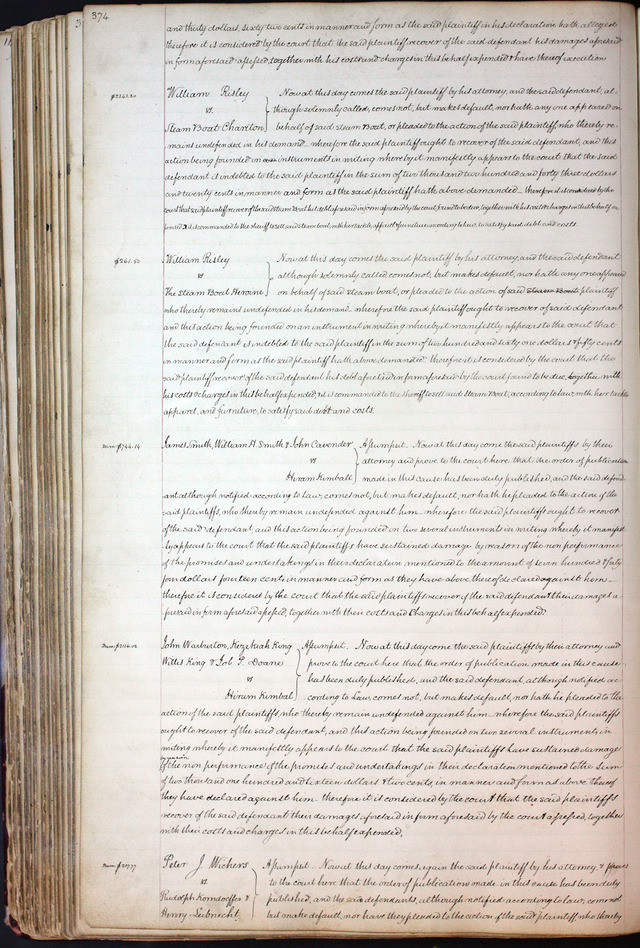 374
and thirty dollars, sixty two cents in manner and form as the said plaintiff in his declaration hath alleged
therefore it is considered by the court that the said plaintiff recover of the said defendant his damages aforesaid
in form aforesaid assessed, together with his costs and charges in this behalf expended & have thereof execution
$2242.20
William Risley
vs.
Steam Boat Chariton
Now at this day comes the said plaintiff by his attorney, and the said defendant, al-
though solemnly called, comes not, but makes default, nor hath any one appeared on
behalf of said Steam Boat, or pleaded to the action of the said plaintiff, who thereby re-
mains undefended in his demand. wherefore the said plaintiff ought to recover of the said defendant, and this
action being founded on instruments in writing whereby it manifestly appears to the court that the said
defendant is indebted to the said plaintiff in the sum of two thousand two hundred and forty three dollars
and twenty cents in manner and form as the said plaintiff hath above demanded — therefore it is considered by the
court that said plaintiff recover of the said Steam Boat his debt aforesaid in form aforesaid by the court found to be due, together with his costs & charges in this behalf ex-
pended, & it is commanded to the sheriff to sell said steam boat, with her tackle apparel & furniture according to law, to satisfy said debt and costs.
$261.50
William Risley
vs
The Steam Boat Heroine
Now at this day comes the said plaintiff by his attorney, and the said defendant
although solemnly called comes not, but makes default, nor hath any one appeared
on behalf of said steam boat, or pleaded to the action of said Steam Boat plaintiff
who thereby remains undefended in his demand. wherefore the said plaintiff ought to recover of said defendant
and this action being founded on an instrument in writing whereby it manifestly appears to the court that
the said defendant is indebted to the said plaintiff in the sum of two hundred and sixty one dollars & fifty cents
in manner and form as the said plaintiff hath above demanded. therefore it is considered by the court that the
said plaintiff recover of the said defendant his debt aforesaid in form aforesaid by the court found to be due, together with
his costs & charges in this behalf expended, & it is commanded to the sheriff to sell said Steam Boat, according to law, with her tackle
apparel, and furniture, to satisfy said debt and costs.
$744.14
James Smith, William H. Smith & John Cavender
vs
Hiram Kimball
Assumpsit. Now at this day come the said plaintiffs by their
attorney and prove to the court here that the order of publication
made in this cause has been duly published, and the said defend
ant although notified according to Law, comes not, but makes default, nor hath he pleaded to the action of the
said plaintiffs, who thereby remain undefended against him. wherefore the said plaintiffs ought to recover
of the said defendant and this action being founded on two several instruments in writing whereby it manifest
ly appears to the court that the said plaintiffs have sustained damage by reason of the non performance
of the promises and undertakings in their declaration mentioned to the amount of seven hundred & forty
four dollars fourteen cents in manner and form as they have above thereof declared against him —
therefore it is considered by the court that the said plaintiffs recover of the said defendant their damages a-
foresaid in form aforesaid assessed, together with their costs and charges in this behalf expended.
$2116.02
John Warburton, Hezekiah King
Willis King & Job P. Doane
vs
Hiram Kimbal
Assumpsit. Now at this day come the said plaintiffs by their attorney and
prove to the court here that the order of publication made in this cause
has been duly published, and the said defendant, although notified ac-
cording to Law, comes not, but makes default, nor hath he pleaded to the
action of the said plaintiffs, who thereby remain undefended against him. wherefore the said plaintiffs
ought to recover of the said defendant, and this action being founded on two several instruments in
writing whereby it manifestly appears to the court that the said plaintiffs have sustained damage
by reason
of the non performance of the promises and undertakings in their declaration mentioned to the sum
of two thousand one hundred and sixteen dollars & two cents, in manner and form as above thereof
they have declared against him. therefore it is considered by the court that the said plaintiffs
recover of the said defendant their damages aforesaid in form aforesaid by the court assessed, together
with their costs and charges in this behalf expended.
Peter J. Wickers
vs.
Rudolph Korndoeffer &
Henry Leibnecht
Assumpsit. Now at this day comes again the said plaintiff by his attorney, & proves
to the court here that the order of publication made in this cause has been duly
published, and the said defendants, although notified according to law, come not
but make default, nor have they pleaded to the action of the said plaintiff who thereby